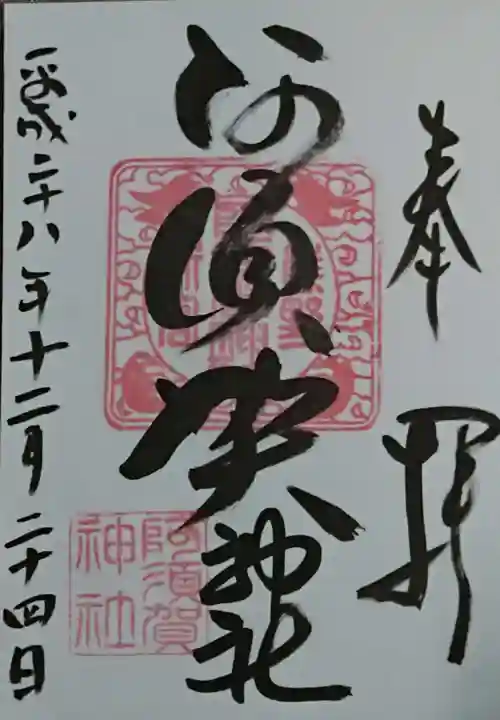 奉拝
阿須賀神社
平成二十八年十二月二十四日
阿須賀
神社